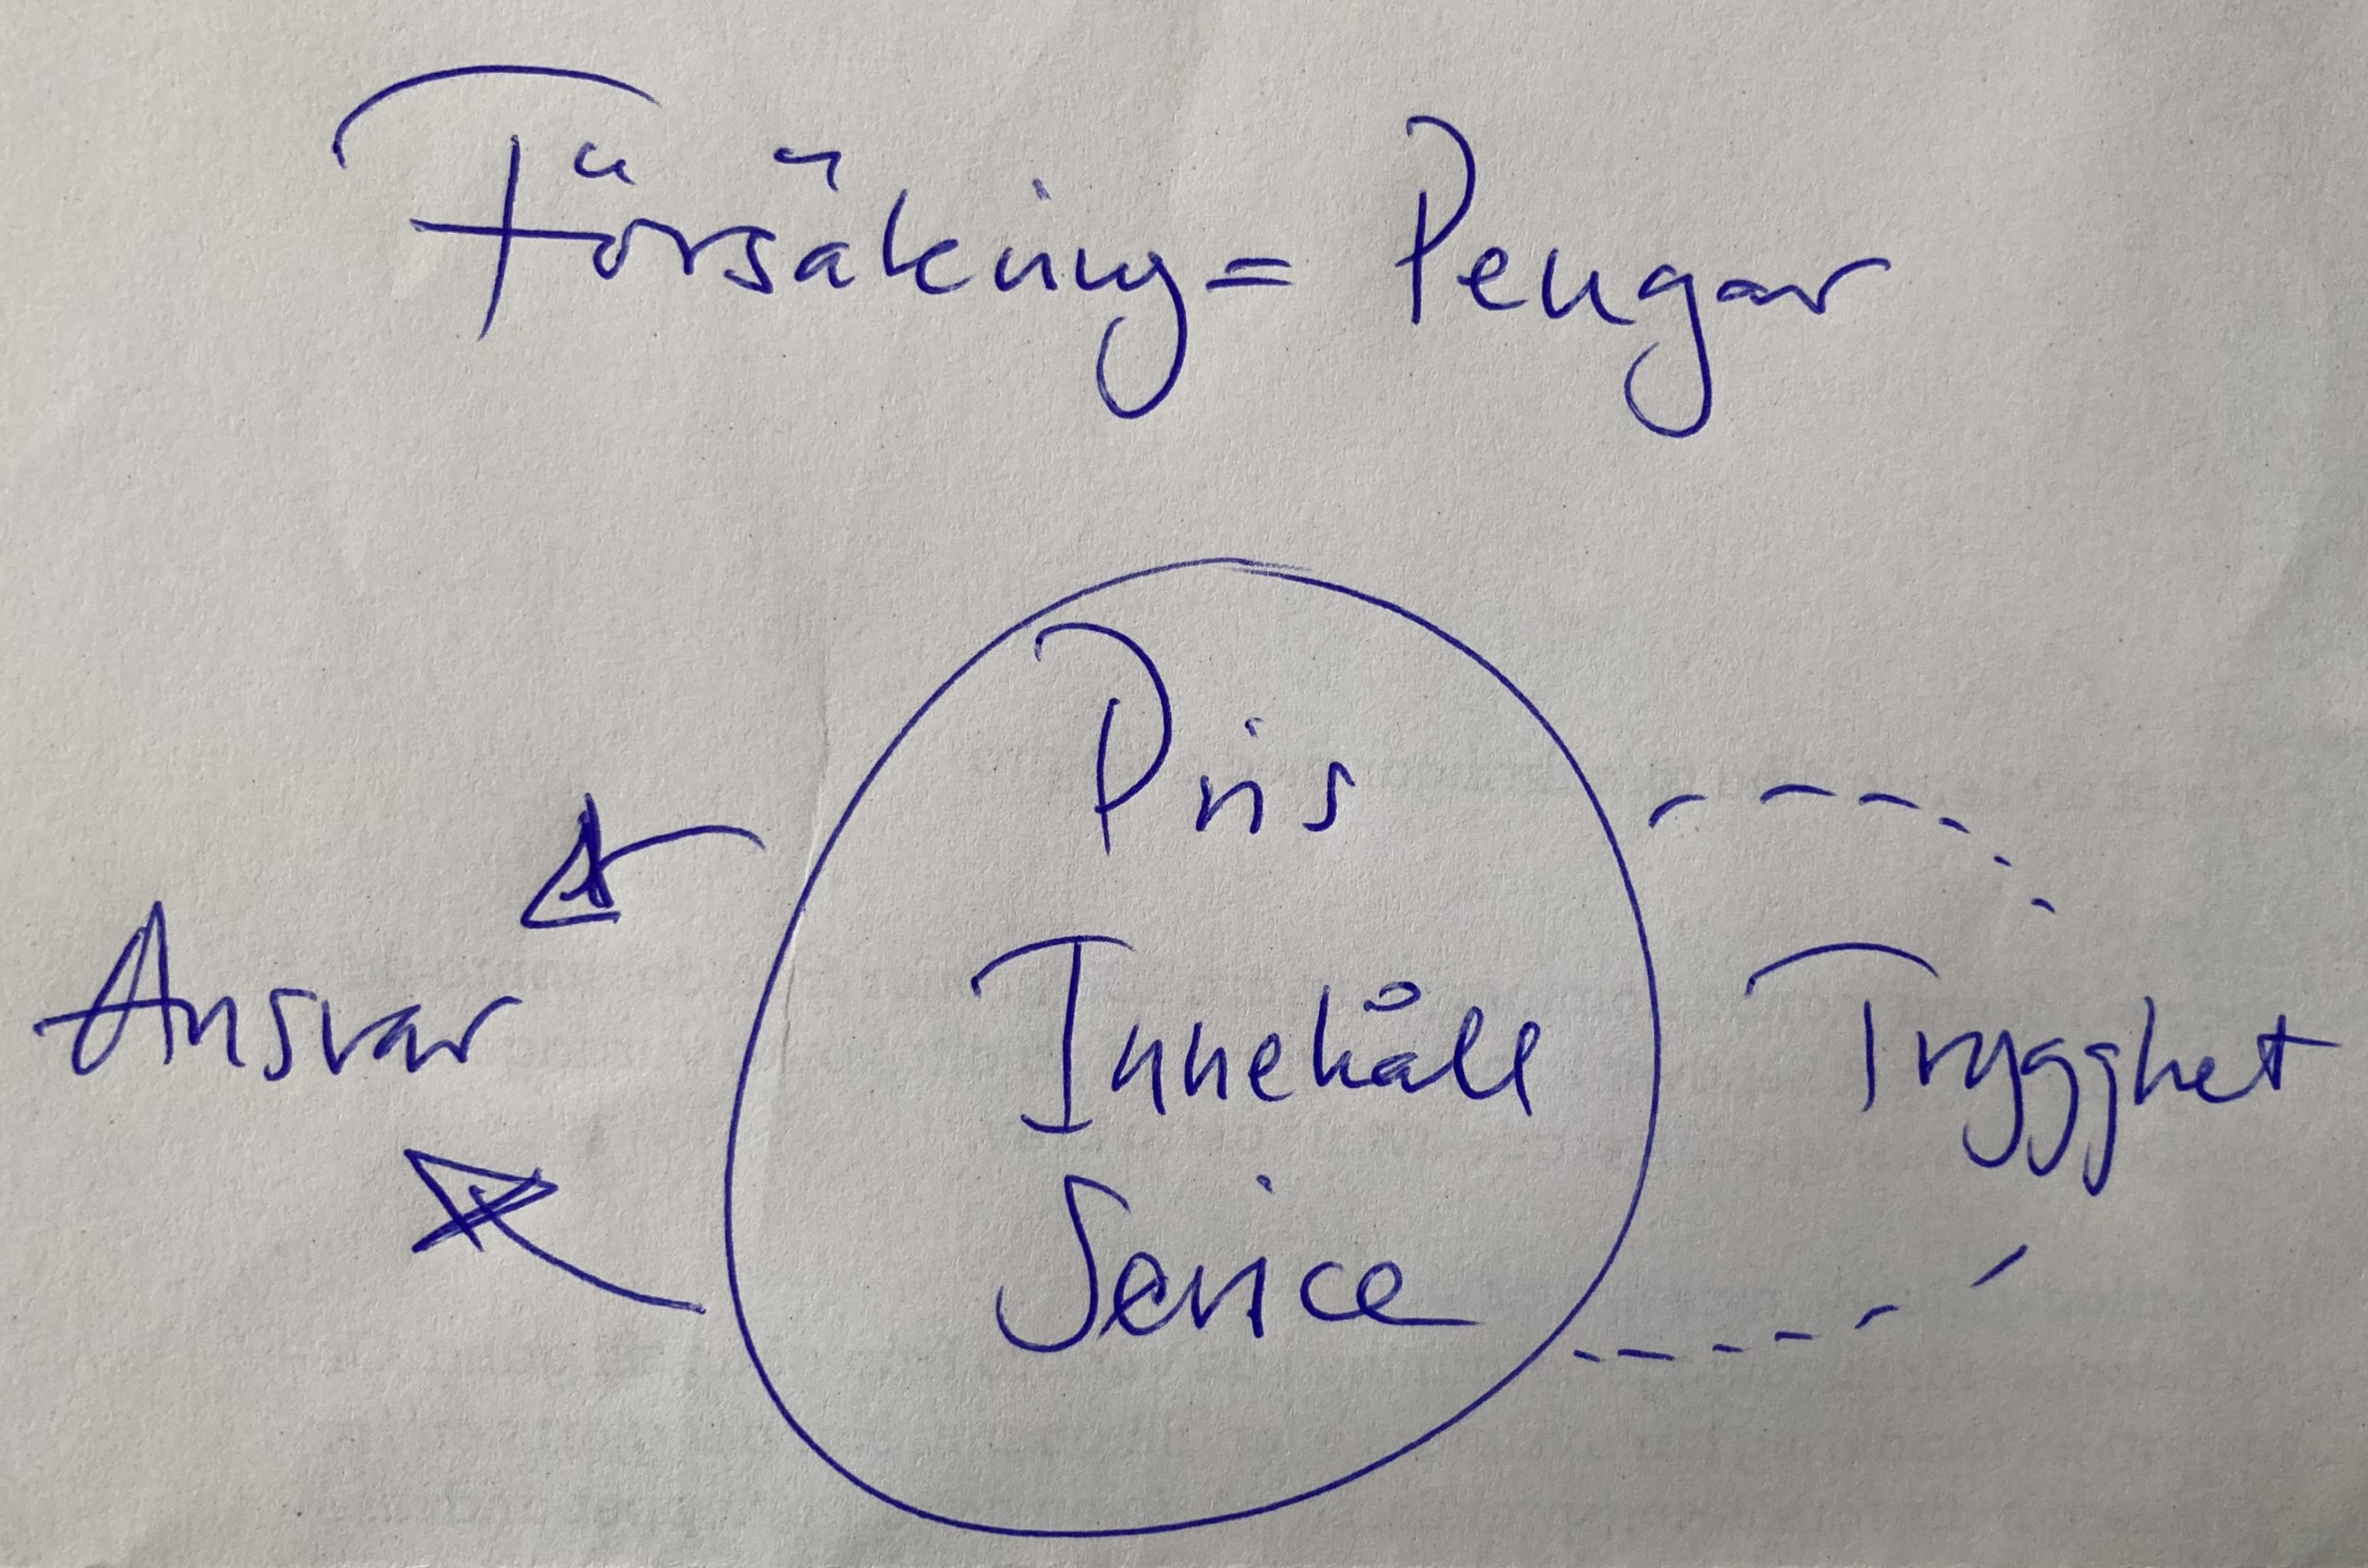 Försäkring = Pengar
Pris
Ansvar
Innehåll
Trygghet
Service